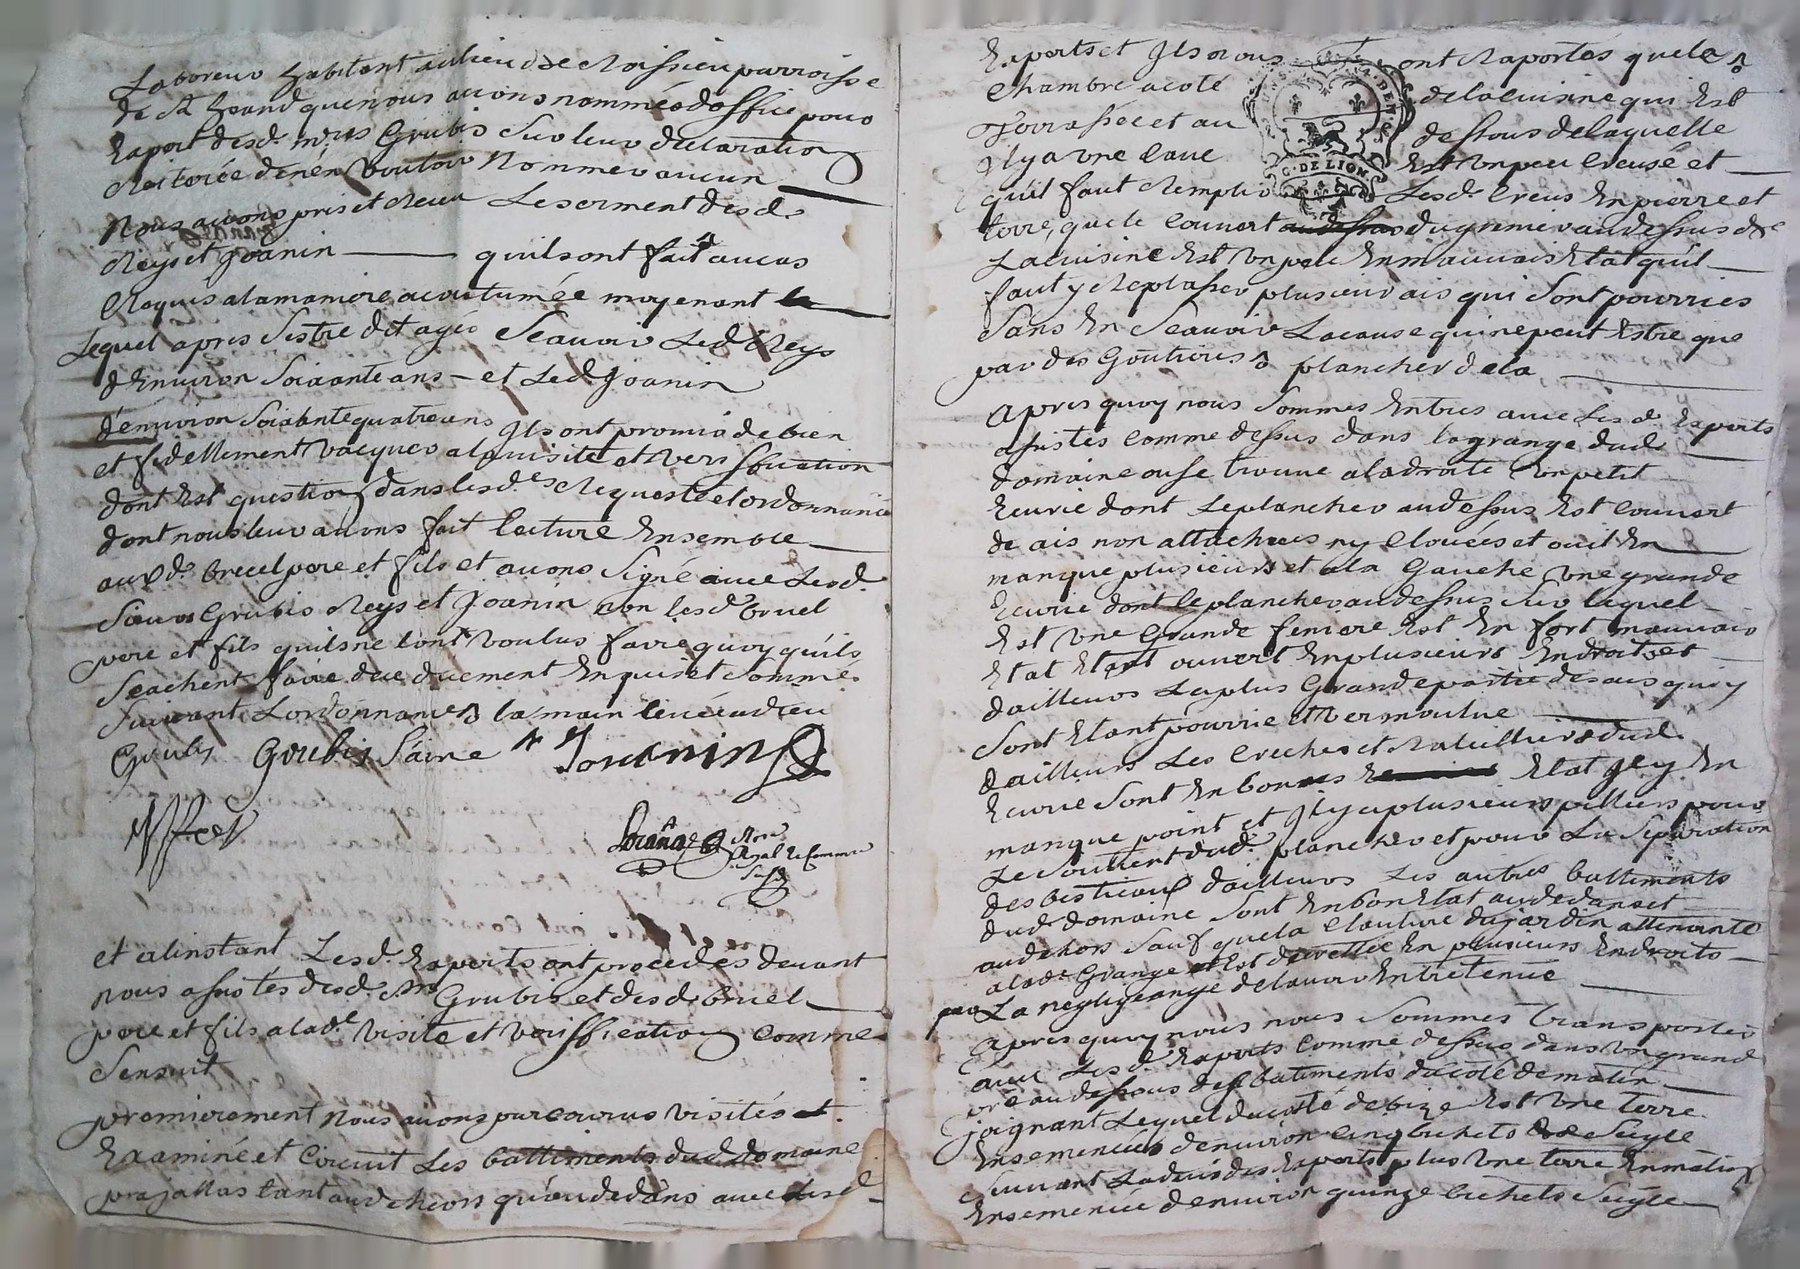 Laboreur habitant au lieu de Moissieu parroisse
de St Jeand que nous avons nommés doffice pour
Raport desd. mrs Grubis Sur leur declaration
Reiterée den'en vouloir Nommer aucun
Nous avons pris et Receu Le serment desd.
Reys et Joanin quils ont fait au cas
Requis a la maniere acoutumée moyenant
Lequel apres s'estre dit agés Seavoir Led Reys
d'Environ Soixante ans et Led Joanin
d'environ Soixante quatre ans Ils ont promis de bien
et fidellement vacquer a la visite et veriffication
dont Est question dans lesd.es Requeste et ordonnance
dont nous leur avons fait lecture Ensemble
auxd. bruel pere et fils et avons Signé avec Lesd.
Sieurs Grubis Reys et Joanin non lesd. bruel
pere et fils quils ne lont voulus faire quoy quils
Seachent faire de ce duement Enquis et Sommés
Suivant Lordonnance la main levée a dieu
Grubis Grubis Saine Joannin
et a linstant Lesd. Experts ont procedés devant
nous assistés desd. Srs Grubis et desd. bruel
pere et fils a lad.e visite et veriffication comme
Sensuit
premierement Nous avons parcourus visités et
Examiné et Circuit Les battiments dud. Domaine
prajallas tant au dehors qu'au dedans avec Lesd.
Experts et Ils nous ont Raportés que la
Chambre a coté de la cuisine qui Est
Terrassée et au dessous de laquelle
Il y a une Cave Est Un peu Creusé et
quil faut Remplir Lesd. Creus En pierre et
terre, que le Couvert du grenier au dessus de
La cuisine Est Un peu En mauvais Etat quil
faut y Replasser plusieurs ais qui Sont pourries
Sans En Seavoir La cause qui ne peut Estre que
par des Goutieres plancher de la
Apres quoy nous Sommes Entres avec Lesd. Experts
assistés Comme dessus dans la grange dud.
domaine ou se trouve a la droite Un petit
Ecurie dont Le plancher au dessus Est Couvert
de ais non attachees ny Clouées et ou il En
manque plusieurs et a la Gauche Une grande
Ecurie dont le plancher au dessus Sur lequel
Est Une Grande feniere Est En fort mauvais
Etat Etant ouvert En plusieurs Endroits et
dailleurs La plus Grande partie des ais quoy
Sont Etant pourrie et Vermoulue
dailleurs Les Creches et Ratelliers dud.
Ecurie Sont En bonnes Etat Il y En
manque point et Il y a plusieurs pilliers pour
Le Soutient dud. plancher et pour La Separation
des bestiaux dailleurs Les autres battiments
dud domaine Sont En bon Etat au dedans et
au dehors Sauf que la Cloture du jardin attenante
a lad. Grange Est En plusieurs Endroits
par La negligeange de lavoir Entretenue
Apres quoy nous nous Sommes Transportés
avec Lesd. Experts Comme dessus dans Un grand
pré au dessous desd batiments du coté de matin
joignant Lequel du costé de bize Est Une terre
Ensemencés d'environ cinq bichets Seigle
Suivant Ladvis des Experts plus Une terre En matin
Ensemencée d'environ quinze bichets Seigle
C. DE LION